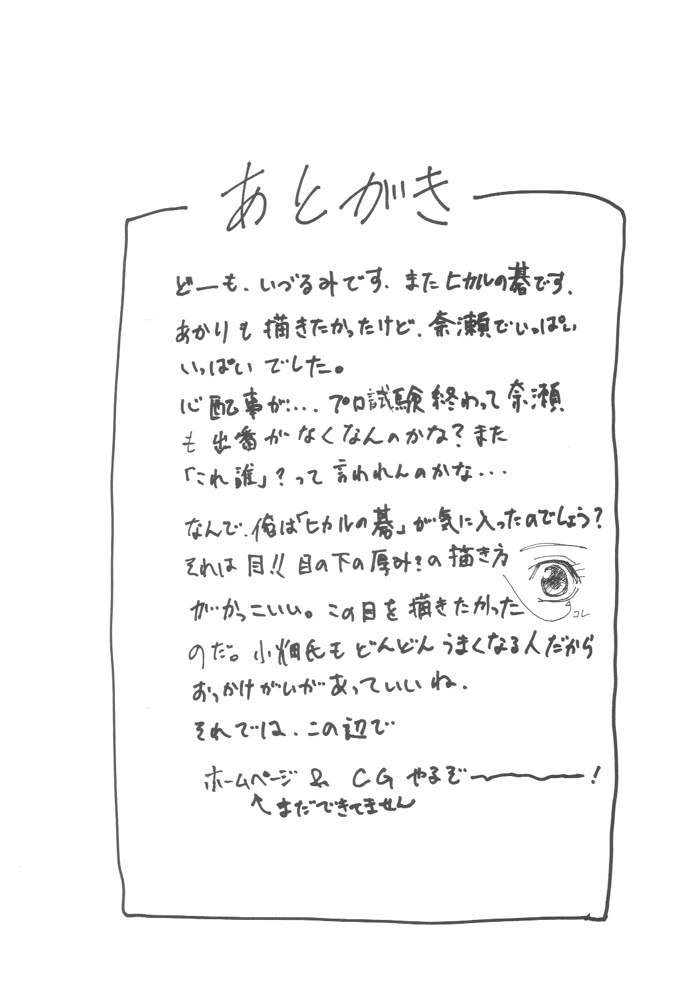 あとがき
どーも、いづるみです。またヒカルの碁です。
あかりも描きたかったけど、奈瀬でいっぱい
いっぱいでした。
心配事が…、プロ試験終わって奈瀬
も出番がなくなんのかな？また
「これ誰」？って言われんのかな…
なんで、俺は「ヒカルの碁」が気に入ったのでしょう？
それは目!!目の下の厚み？の描き方
がかっこいい。この目を描きたかった
コレ
のだ。小畑氏もどんどんうまくなる人だから
おっかけがいがあっていいね。
それでは、この辺で
ホームページ & CG やるぞ〜〜〜！
↖まだできてません